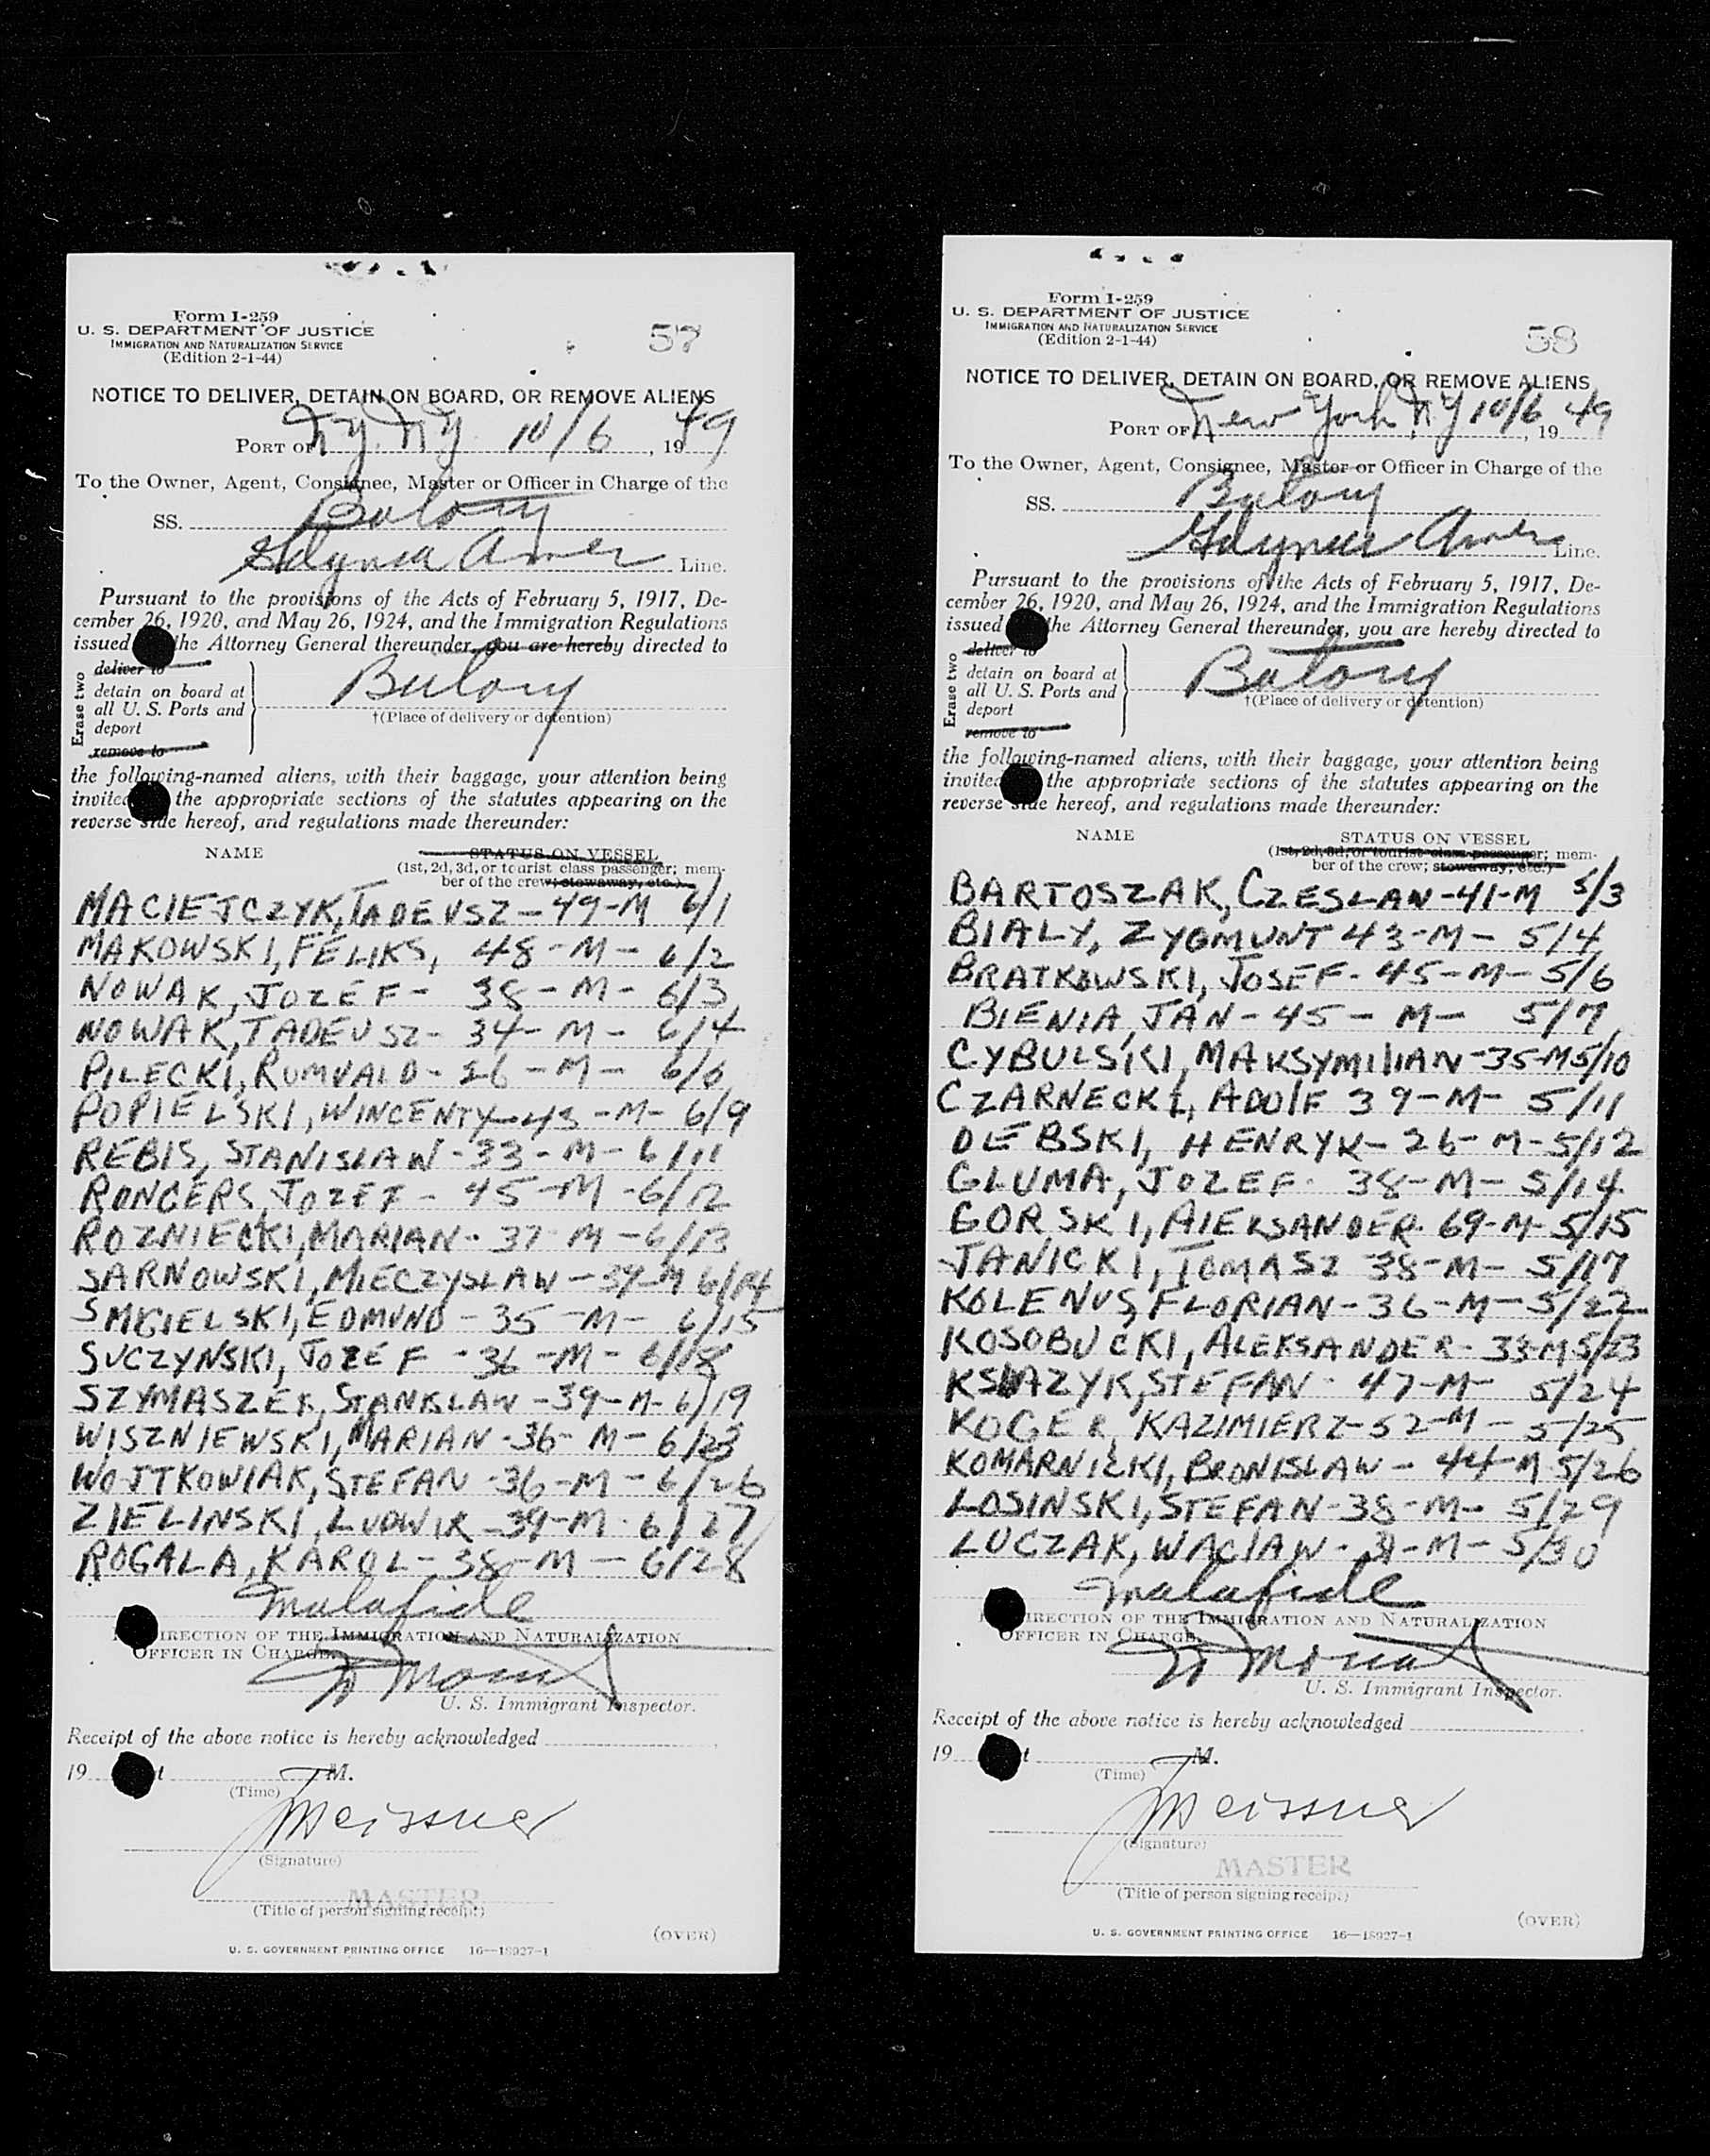 Form I-259
U. S. DEPARTMENT OF JUSTICE
IMMIGRATION AND NATURALIZATION SERVICE
(Edition 2-1-44)
57
NOTICE TO DELIVER, DETAIN ON BOARD, OR REMOVE ALIENS
PORT OF NY. NY 10/6, 1949
To the Owner, Agent, Consignee, Master or Officer in Charge of the
SS. Batory
Gdynia Amer Line.
Pursuant to the provisions of the Acts of February 5, 1917, De-
cember 26, 1920, and May 26, 1924, and the Immigration Regulations
issued the Attorney General thereunder, you are hereby directed to
Erase two
deliver to
detain on board at
all U. S. Ports and
deport
remove to
Batory
†(Place of delivery or detention)
the following-named aliens, with their baggage, your attention being
invited the appropriate sections of the statutes appearing on the
reverse side hereof, and regulations made thereunder:
NAME STATUS ON VESSEL
(1st, 2d, 3d, or tourist class passenger; mem-
ber of the crew; stowaway, etc.)
MACIEJCZYK, TADEUSZ - 49-M 6/1
MAKOWSKI, FELIKS, 48-M- 6/2
NOWAK, JOZEF- 38-M- 6/3
NOWAK, TADEUSZ- 34-M- 6/4
PILECKI, ROMUALD- 26-M- 6/6
POPIELSKI, WINCENTY-43-M- 6/9
REBIS, STANISLAW-33-M-6/11
RONGERS, JOZEF- 45-M-6/12
ROZNIECKI, MARIAN- 37-M-6/13
SARNOWSKI, MIECZYSLAW-34-M 6/14
SMIGIELSKI, EDMUND-35-M- 6/15
SUCZYNSKI, JOZEF-36-M- 6/18
SZYMASZEK, STANISLAW-39-M-6/19
WISZNIEWSKI, MARIAN-36-M-6/23
WOJTKOWIAK, STEFAN-36-M-6/26
ZIELINSKI, LUDWIK-39-M-6/27
ROGALA, KAROL-38-M-6/28
malafide
DIRECTION OF THE IMMIGRATION AND NATURALIZATION
OFFICER IN CHARGE.
U. S. Immigrant Inspector.
Receipt of the above notice is hereby acknowledged
19 t M.
(Time)
Meissner
(Signature)
MASTER
(Title of person signing receipt)
(OVER)
U. S. GOVERNMENT PRINTING OFFICE 16—18927-1
Form I-259
U. S. DEPARTMENT OF JUSTICE
IMMIGRATION AND NATURALIZATION SERVICE
(Edition 2-1-44)
58
NOTICE TO DELIVER, DETAIN ON BOARD, OR REMOVE ALIENS
PORT OF New York, NY 10/6, 1949
To the Owner, Agent, Consignee, Master or Officer in Charge of the
SS. Batory
Gdynia Amer Line.
Pursuant to the provisions of the Acts of February 5, 1917, De-
cember 26, 1920, and May 26, 1924, and the Immigration Regulations
issued the Attorney General thereunder, you are hereby directed to
Erase two
deliver to
detain on board at
all U. S. Ports and
deport
remove to
Batory
†(Place of delivery or detention)
the following-named aliens, with their baggage, your attention being
invited the appropriate sections of the statutes appearing on the
reverse side hereof, and regulations made thereunder:
NAME STATUS ON VESSEL
(1st, 2d, 3d, or tourist class passenger; mem-
ber of the crew; stowaway, etc.)
BARTOSZAK, CZESLAN-41-M 5/3
BIALY, ZYGMUNT 43-M- 5/4
BRATKOWSKI, JOSEF-45-M-5/6
BIENIA, JAN-45-M- 5/7
CYBULSKI, MAKSYMILIAN-35-M 5/10
CZARNECKI, ADOLF 39-M- 5/11
DEBSKI, HENRYK-26-M-5/12
GLUMA, JOZEF- 38-M-5/14
GORSKI, ALEKSANDER-69-M-5/15
JANICKI, TOMASZ 38-M- 5/17
KOLENUS, FLORIAN-36-M-5/22
KOSOBUCKI, ALEKSANDER-33-M 5/23
KSIAZYK, STEFAN- 47-M- 5/24
KOGER, KAZIMIERZ-52-M-5/25
KOMARNICKI, BRONISLAW-44-M 5/26
LOSINSKI, STEFAN-38-M-5/29
LUCZAK, WACLAW-31-M-5/30
malafide
DIRECTION OF THE IMMIGRATION AND NATURALIZATION
OFFICER IN CHARGE.
U. S. Immigrant Inspector.
Receipt of the above notice is hereby acknowledged
19 t M.
(Time)
Meissner
(Signature)
MASTER
(Title of person signing receipt)
(OVER)
U. S. GOVERNMENT PRINTING OFFICE 16—18927-1